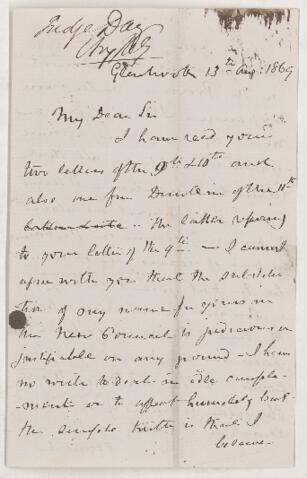 Judge Day
Glenbrook 13th Aug: 1869
My Dear Sir
I have read your
two letters of the 9th & 10th and
also one from Dunlin of the 11th
the latter refering
to your letter of the 9th — I cannot
agree with you that the substitu
tion of my name for yours in
the New Council is judicious or
justifiable on any ground — I have
no wish to deal in idle comple
ments or to affect humility but
the simple truth is that I